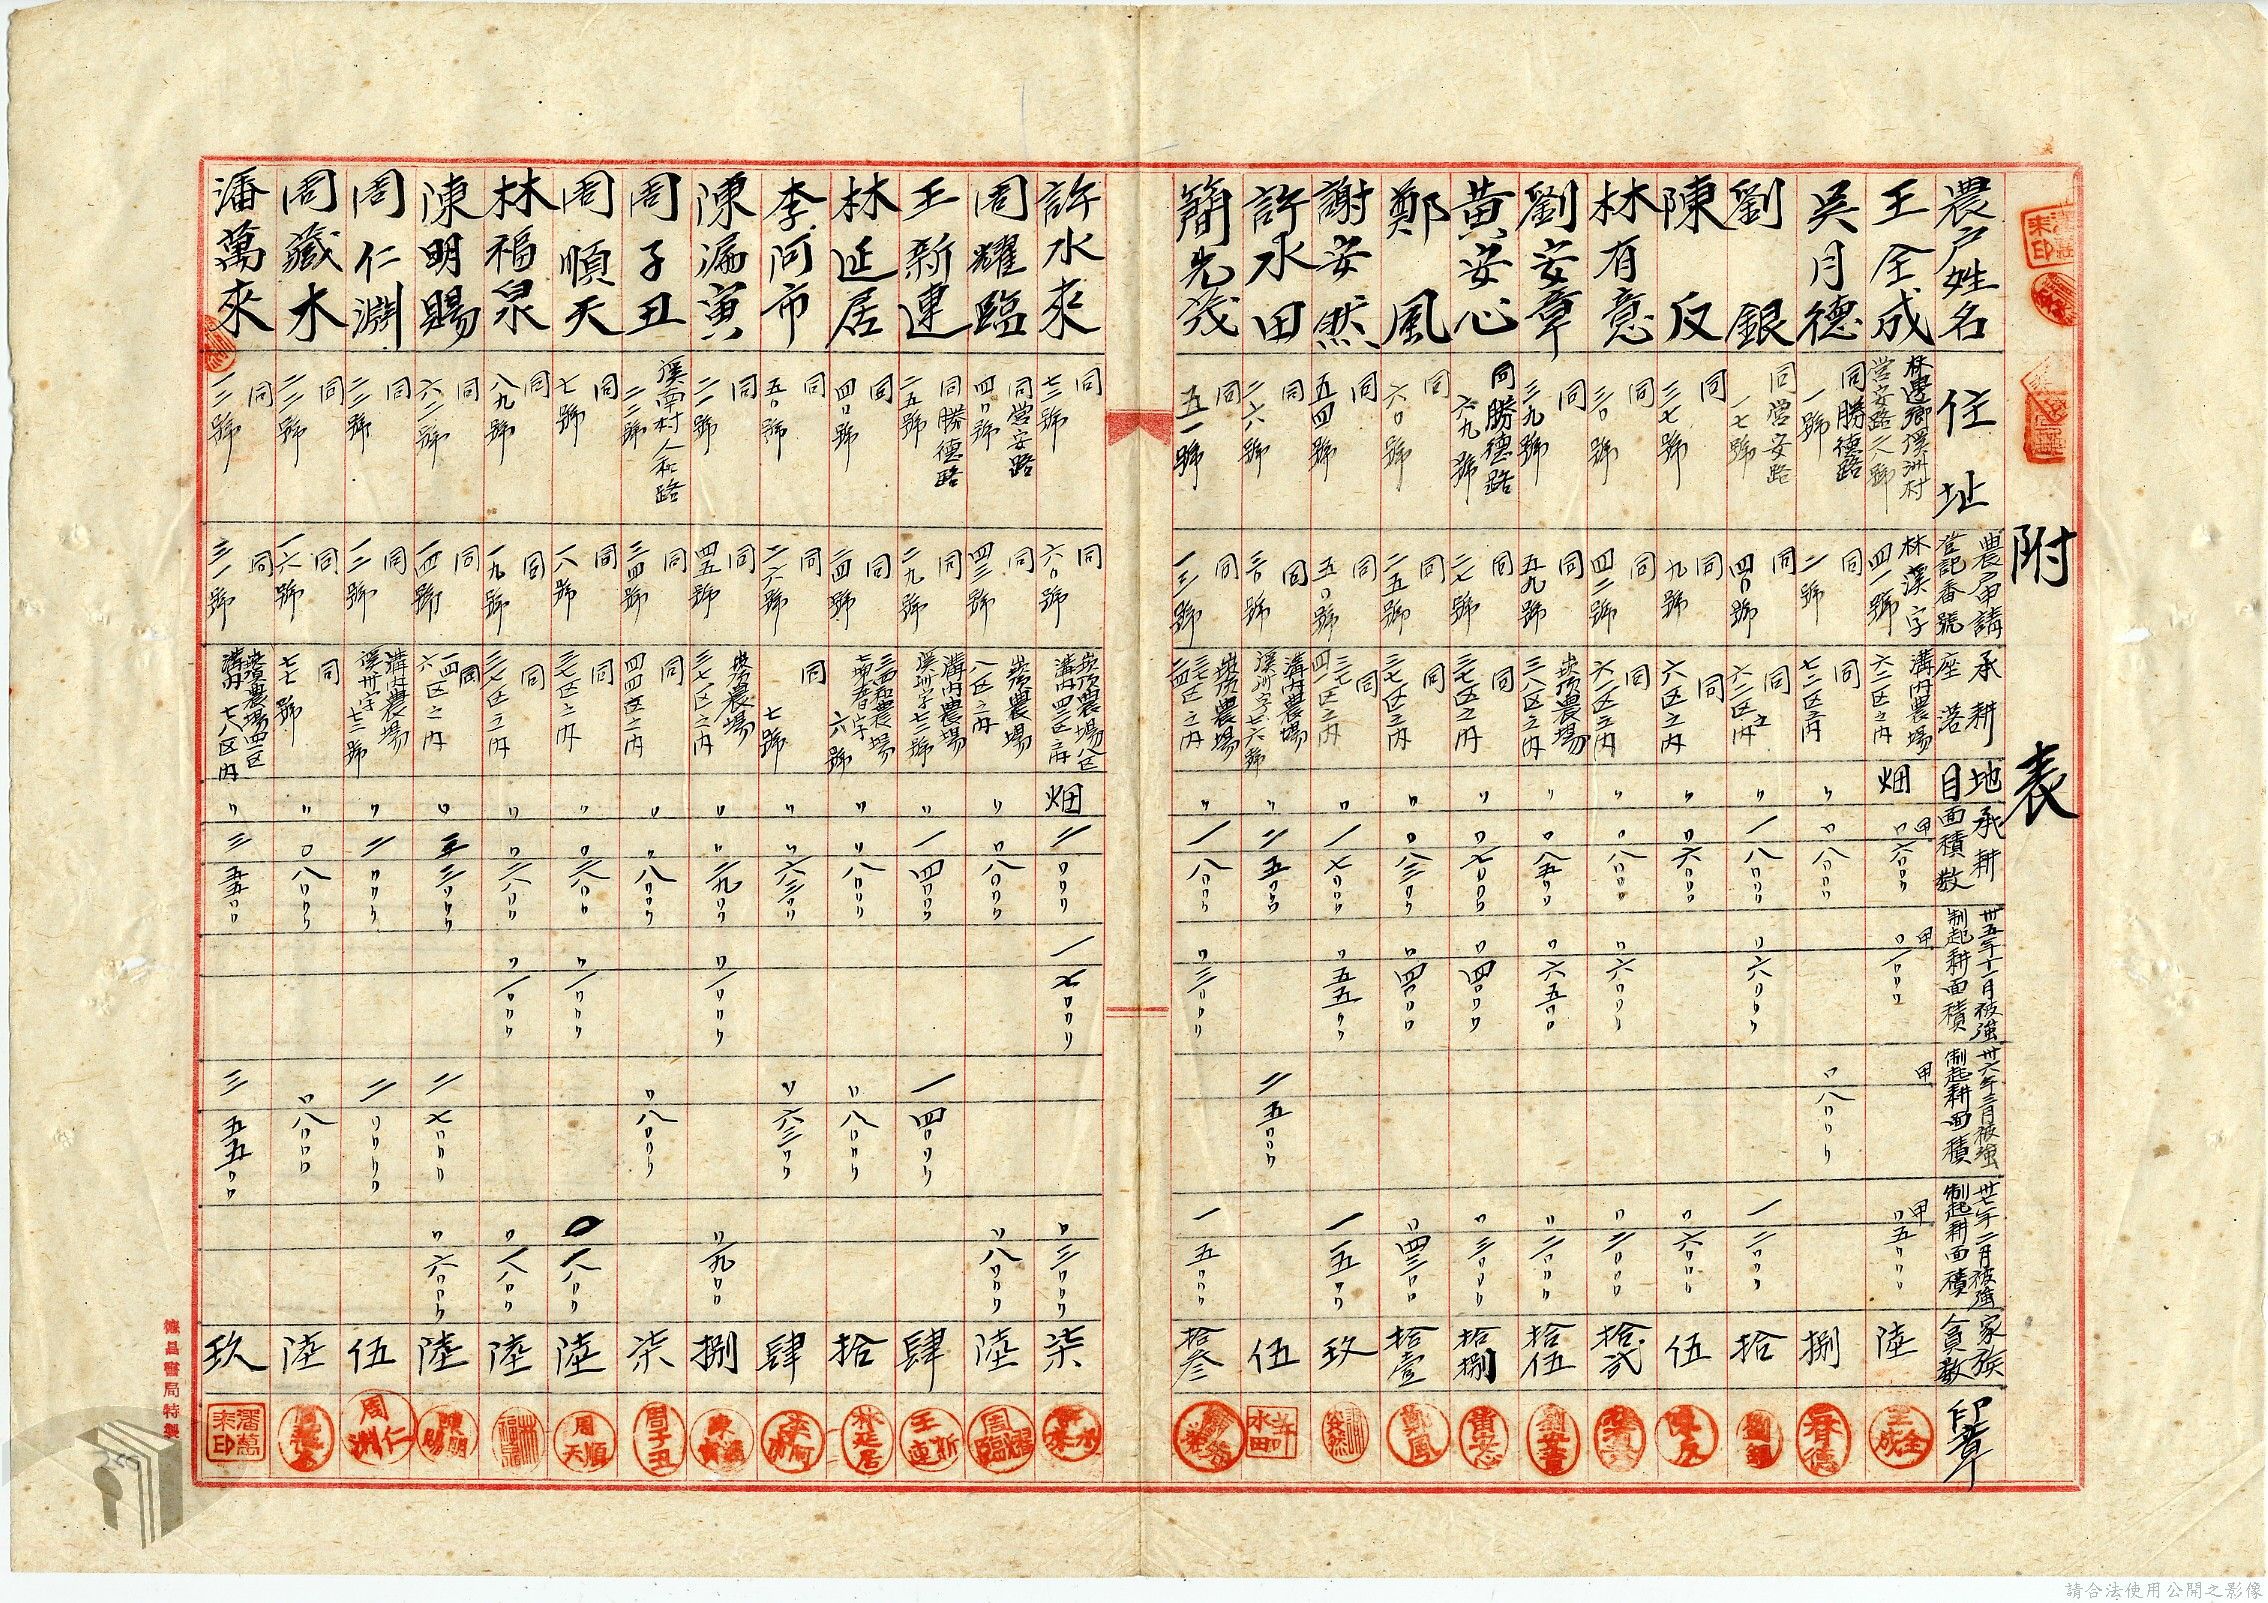 附表
農戶姓名 住址 農届申請登記番號 承耕座落 地目 承耕面積数 卅五年十一月被強制起耕面積 卅六年三月被強制起耕面積 卅七年二月被強制起耕面積 家族人員数 印章
王全成 林邊鄉溪洲村營安路二八號 林溪字四一號 溝内農場六二区之内 畑 甲〇六〇〇〇 甲〇一〇〇〇 甲 甲〇五〇〇〇 陸 王全成
吳月德 同勝德路一號 同二號 同七二区之内 〃 〇八〇〇〇 〇八〇〇〇 捌
劉銀 同營安路一七號 同四〇號 同六二区之内 〃 一八〇〇〇 〇六〇〇〇 一二〇〇〇 拾 劉銀
陳反 同三七號 同九號 同六区之内 〃 〇六〇〇〇 〇六〇〇〇 伍 陳反
林有意 同三〇號 同四二號 同六区之内 〃 〇八〇〇〇 〇六〇〇〇 〇二〇〇〇 拾弍
劉安章 同三九號 同五九號 崁頂農場三八区之内 〃 〇八五〇〇 〇六五〇〇 〇二〇〇〇 拾伍 劉安章
黃安心 同勝德路六九號 同二七號 同三七区之内 〃 〇七〇〇〇 〇四〇〇〇 〇三〇〇〇 拾捌 黃安心
鄭風 同六〇號 同二五號 同三七区之内 〃 〇八三〇〇 〇四〇〇〇 〇四三〇〇 拾壹 鄭風
謝安然 同五四號 同五〇號 同三七四一区之内 〃 一七〇〇〇 〇五五〇〇 一一五〇〇 玖 謝安然
許水田 同二六號 同三〇號 溝内農場溪洲字七六號 〃 二五〇〇〇 二五〇〇〇 伍 許水田
簡先發 同五一號 同一三號 崁頂農場三七区之内 〃 一八〇〇〇 〇三〇〇〇 一五〇〇〇 拾叁
許水來 同七三號 同六〇號 崁頂農場八区溝内四三区之内 畑 二〇〇〇〇 一七〇〇〇 〇三〇〇〇 柒 許水來
周耀臨 同營安路四〇號 同四三號 崁頂農場八区之内 〃 〇八〇〇〇 〇八〇〇〇 陸 周耀臨
王新連 同勝德路二五號 同二九號 溝内農場溪洲字七三號 〃 一四〇〇〇 一四〇〇〇 肆 王新連
林延居 同四〇號 同二四號 三西和農場 六號 〃 〇八〇〇〇 〇八〇〇〇 拾 林延居
李阿市 同五〇號 同二六號 同七號 〃 〇六三〇〇 〇六三〇〇 肆 李阿市
陳漏寅 同二一號 同四五號 崁頂農場三七区之内 〃 〇二九〇〇 〇一〇〇〇 〇一九〇〇 捌 陳漏寅
周子丑 溪南村人和路二二號 同三四號 同四四区之内 〃 〇八〇〇〇 〇八〇〇〇 柒 周子丑
周順天 同七號 同八號 同三七区之内 〃 〇二八〇〇 〇一〇〇〇 〇一八〇〇 陸 周順天
林福泉 同八九號 同一九號 同三七区之内 〃 〇二八〇〇 〇一〇〇〇 〇一八〇〇 陸 林福泉
陳明賜 同六二號 同一四號 同一四六区之内 〃 三三〇〇〇 二七〇〇〇 〇六〇〇〇 陸 陳明賜
周仁淵 同二三號 同一二號 溝内農場溪州字七三號 〃 二〇〇〇〇 二〇〇〇〇 伍 周仁淵
周藏木 同二三號 同一六號 同七七號 〃 〇八〇〇〇 〇八〇〇〇 陸
潘萬來 同一二號 同三一號 崁頂農場四区溝内七八区内 〃 三五五〇〇 三五五〇〇 玖 潘萬來印
德昌書局特製
請合法使用公開之影像